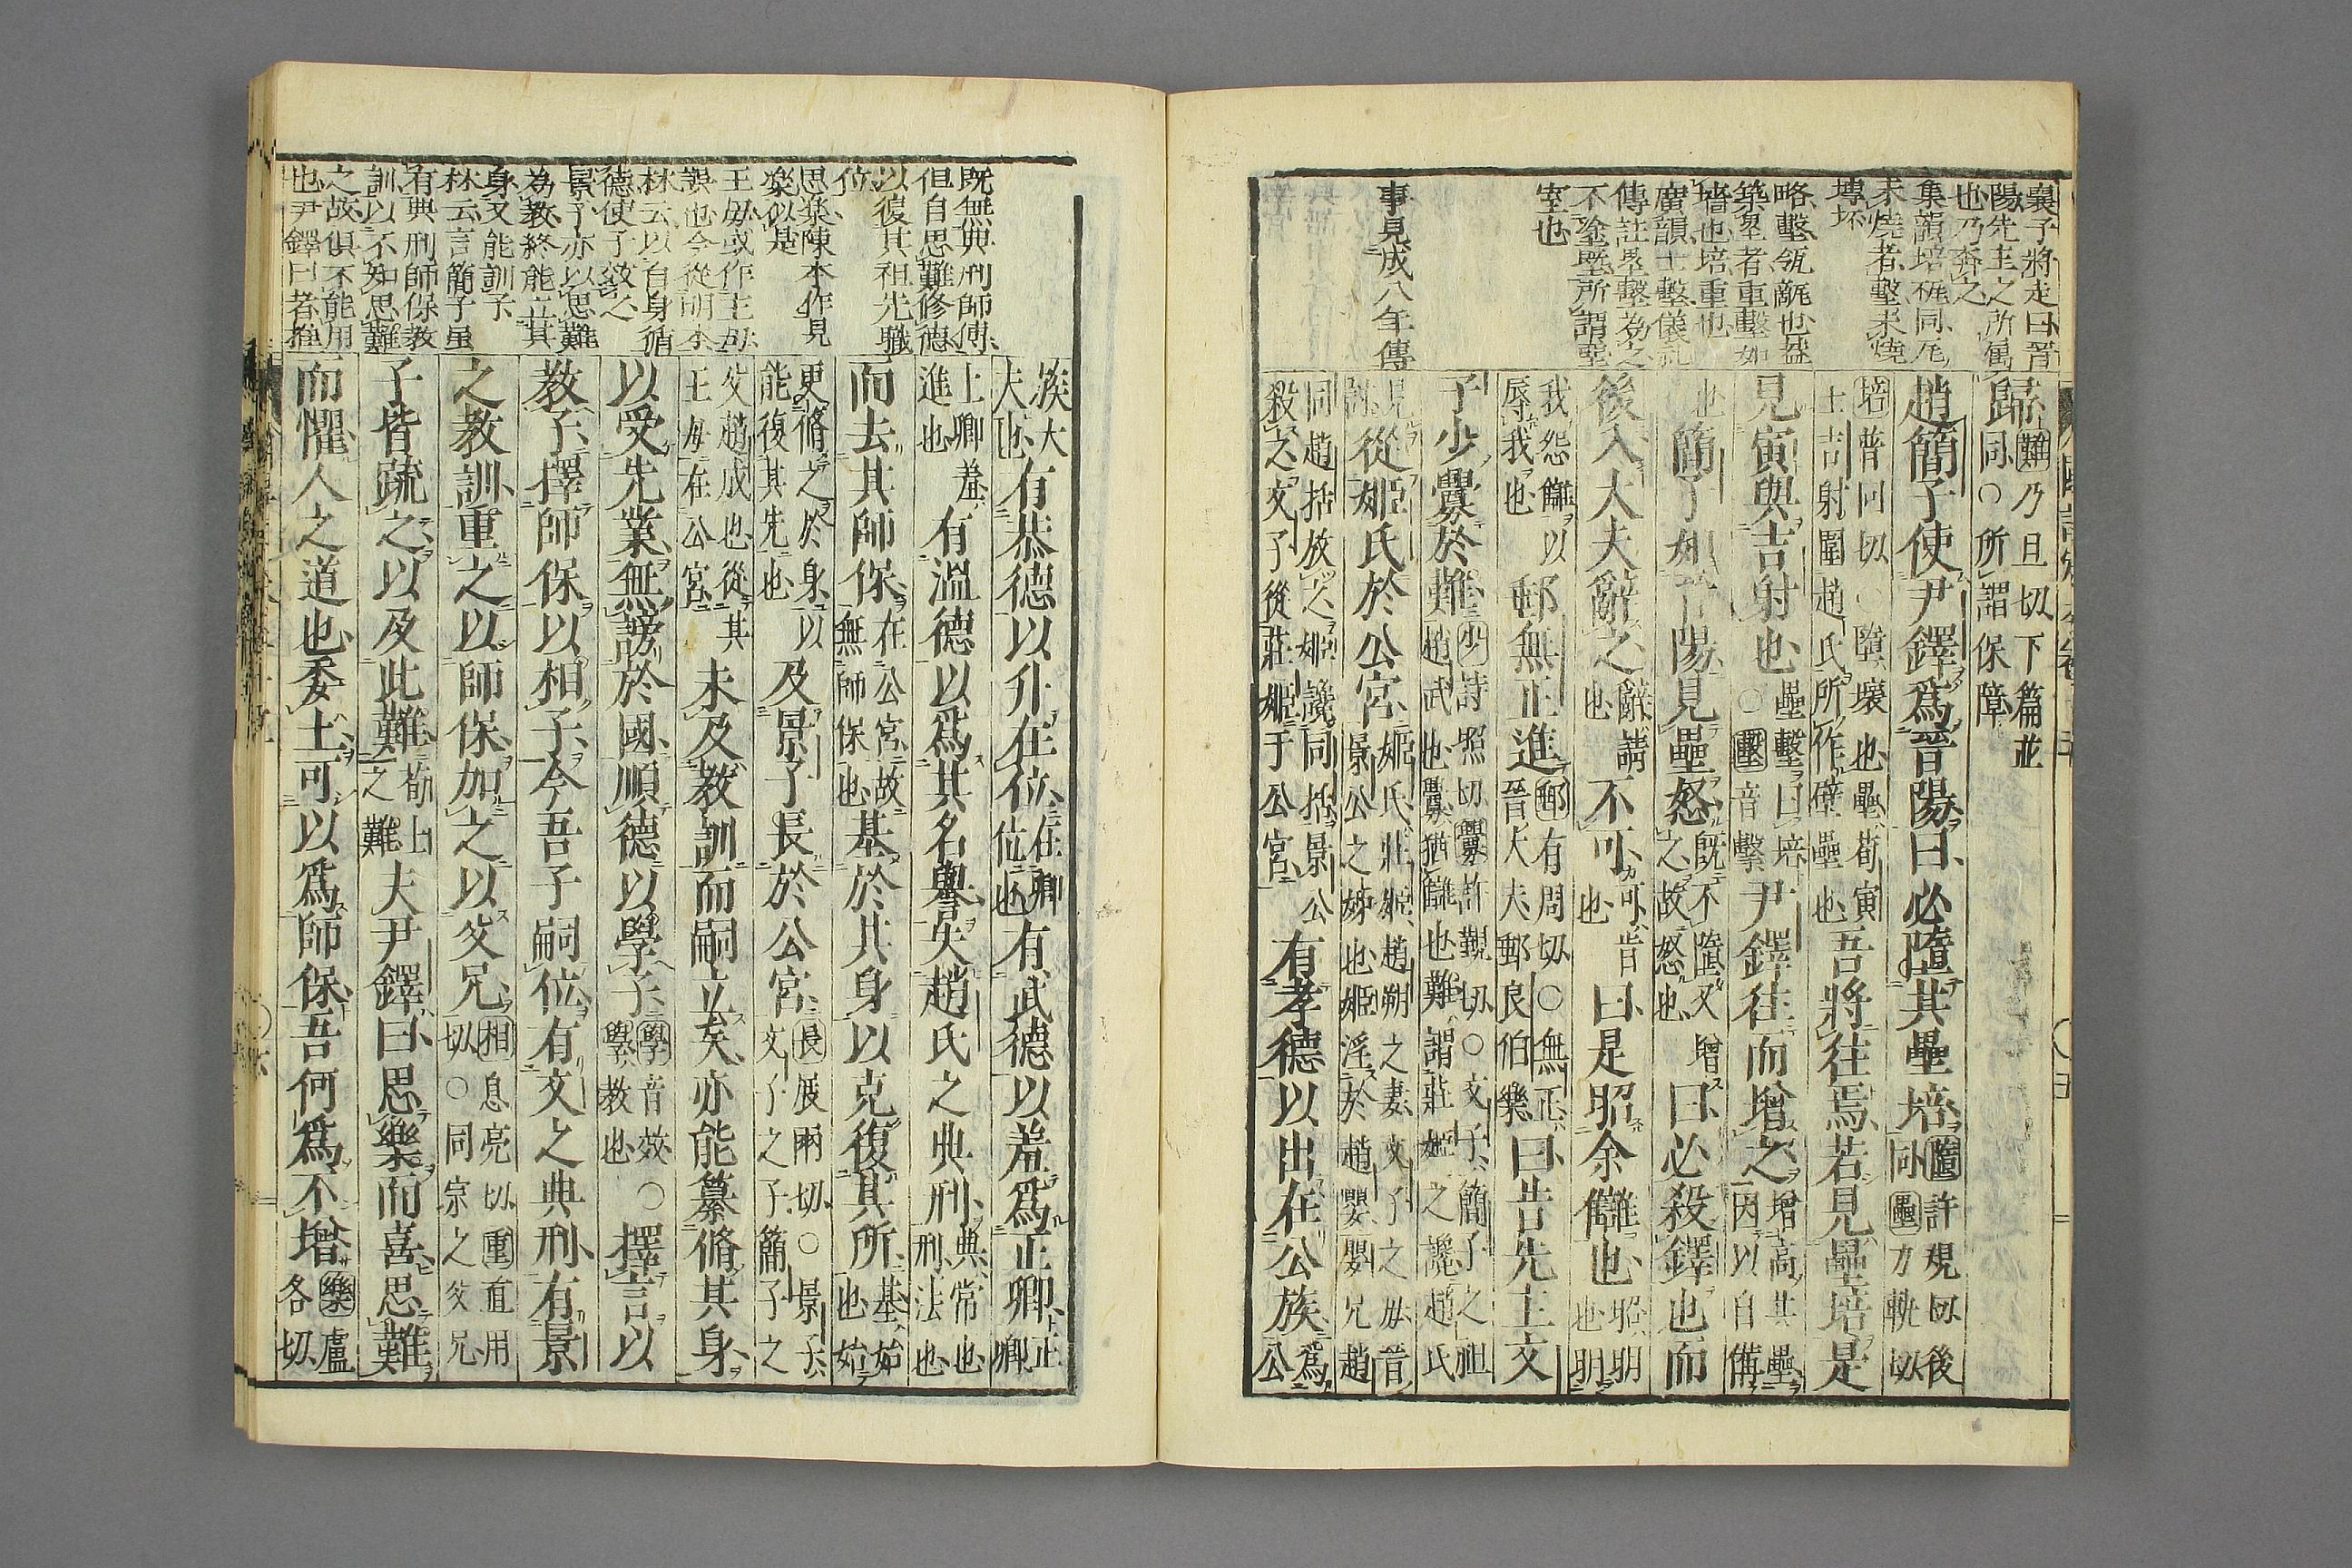 襄子將走曰晋
陽先主之所屬
也乃奔之
集韻培
同瓦
未燒者墼未燒
塼坏
略墼瓴甋也
築壘者重墼如
墻也培重也
廣韻土墼儀礼
傳註壘墼為之
不塗塈所謂堊
室也
事見成八年傳
歸難乃旦切下篇並同○所謂保障
趙簡子使尹鐸爲晉陽曰必墮其壘培墮許規切後同壘力軌切
培普回切○墮壞也壘荀寅士吉射圍趙氏所作壁壘也吾將往焉若見壘培是
見寅與吉射也壘墼曰培○墼音擊尹鐸往而增之增高其壘因以自備
也簡子如晉陽見壘怒既不墮又增之故怒也曰必殺鐸也而
後入大夫辭之辭請也不可可肯也曰是昭余讎也昭明也明
我怨讎以辱我也郵無正進郵有周切○無正晉大夫郵良伯樂曰昔先主文
子少釁於難少詩照切釁許覲切○文子簡子之祖趙武也釁猶離也難謂莊姬之讒趙氏
見討從姬氏於公宮姬氏莊姬趙朔之妻文子之母晉景公之姊也姬淫於趙嬰嬰兄趙
同趙括放之姬讒同括景公殺之文子從莊姬于公宮有孝德以出在公族爲公
既無典刑師傅
但自思難修德
以復其祖先職
位
思樂陳本作見
樂似是
王毋或作主毋
誤也今從明本
林云以自身循
德使子效之
景子亦以思難
為教終能立其
身又能訓子
林云言簡子虽
有典刑師保教
訓以不知思難
之故俱不能用
也尹鐸曰者推
族大夫也有恭德以升在位在卿位也有武德以羞爲正卿正卿
上卿羞進也有溫德以爲其名譽失趙氏之典刑典常也刑法也
而去其師保在公宮故無師保也基於其身以克復其所基始也始
更脩之於身以能復其先也及景子長於公宮長展兩切○景子文子之子簡子之
父趙成也從其王母在公宮未及教訓而嗣立矣亦能纂脩其身
以受先業無謗於國順德以學子學音效○學教也擇言以
教子擇師保以相子今吾子嗣位有文之典刑有景
之教訓重之以師保加之以父兄相息亮切重直用切○同宗之父兄
子皆疏之以及此難荀士之難夫尹鐸曰思樂而喜思難
而懼人之道也委土可以爲師保吾何爲不增樂盧各切